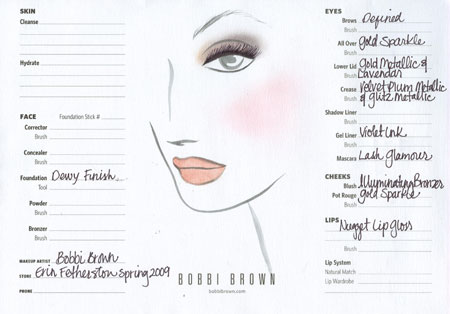 SKIN
Cleanse
Hydrate
FACE Foundation Stick #
Corrector
Brush
Concealer
Brush
Foundation Dewy Finish
Tool
Powder
Brush
Bronzer
Brush
MAKEUP ARTIST Bobbi Brown
STORE Erin Fetherston Spring 2009
PHONE
BOBBI BROWN
bobbibrown.com
EYES
Brows Defined
Brush
All Over Gold Sparkle
Brush
Lower Lid Gold Metallic &
Brush Lavendar
Crease Velvet Plum Metallic
Brush & Glitz Metallic
Shadow Liner
Brush
Gel Liner Violet Ink
Brush
Mascara Lash Glamour
CHEEKS
Blush Illuminating Bronzer
Pot Rouge Gold Sparkle
Brush
LIPS
Nugget Lip Gloss
Brush
Lip System
Natural Match
Lip Wardrobe